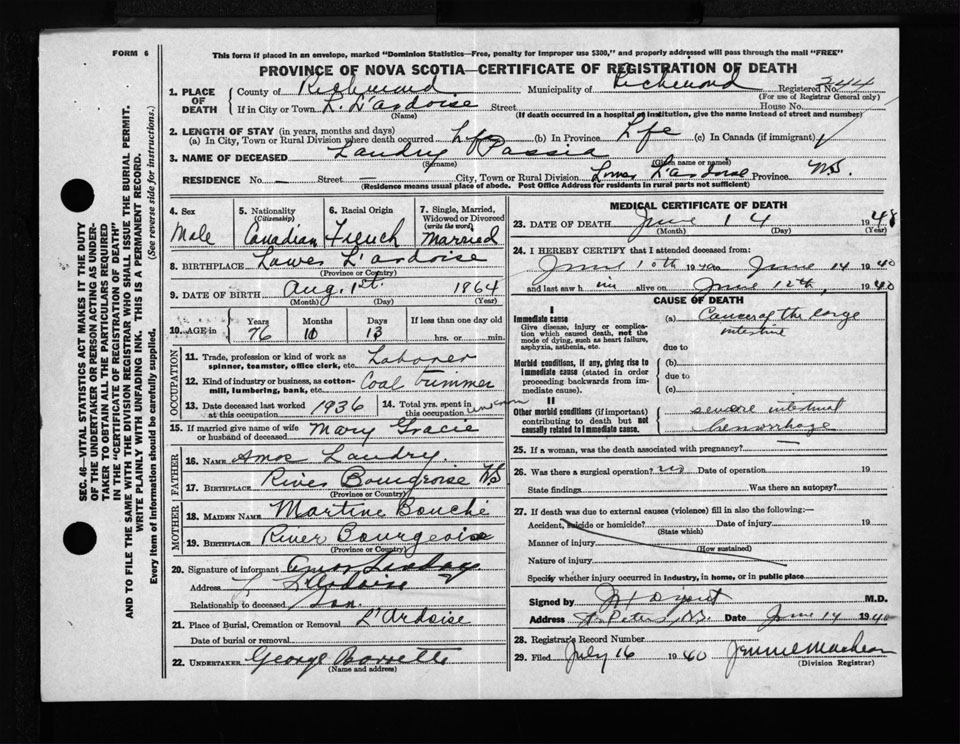 FORM 6
This form if placed in an envelope, marked "Dominion Statistics—Free, penalty for improper use $300," and properly addressed will pass through the mail "FREE"
PROVINCE OF NOVA SCOTIA—CERTIFICATE OF REGISTRATION OF DEATH
1. PLACE OF DEATH County of Richmond Municipality of Richmond Registered No. 344
(For use of Registrar General only)
If in City or Town L. L'ardoise Street House No.
(Name) (If death occurred in a hospital or institution, give the name instead of street and number)
2. LENGTH OF STAY (in years, months and days)
(a) In City, Town or Rural Division where death occurred Life (b) In Province Life (c) In Canada (if immigrant)
3. NAME OF DECEASED Landry Passia
(Surname) (Given name or names)
RESIDENCE No. — Street — City, Town or Rural Division Lower L'ardoise Province NS.
(Residence means usual place of abode. Post Office Address for residents in rural parts not sufficient)
4. Sex Male
5. Nationality (Citizenship) Canadian
6. Racial Origin French
7. Single, Married, Widowed or Divorced (write the word) Married
8. BIRTHPLACE Lower L'ardoise
(Province or Country)
9. DATE OF BIRTH Aug. 1st. 1864
(Month) (Day) (Year)
10. AGE in Years 76 Months 10 Days 13 If less than one day old hrs. or min.
OCCUPATION
11. Trade, profession or kind of work as spinner, teamster, office clerk, etc. Laborer
12. Kind of industry or business, as cotton-mill, lumbering, bank, etc. Coal trimmer
13. Date deceased last worked at this occupation 1936 14. Total yrs. spent in this occupation
15. If married give name of wife or husband of deceased Mary Gracie
FATHER
16. NAME Amos Landry
17. BIRTHPLACE River Bourgeoise NS
(Province or Country)
MOTHER
18. MAIDEN NAME Martine Bouché
19. BIRTHPLACE River Bourgeoise
(Province or Country)
20. Signature of informant Amos Landry
Address L. L'Ardoise
Relationship to deceased Son
21. Place of Burial, Cremation or Removal L'Ardoise
Date of burial or removal
22. UNDERTAKER George
(Name and address)
MEDICAL CERTIFICATE OF DEATH
23. DATE OF DEATH June 14 1948
(Month) (Day) (Year)
24. I HEREBY CERTIFY that I attended deceased from:
June 10th 1940 to June 14 1940
and last saw him alive on June 12th, 1940
CAUSE OF DEATH
I
Immediate cause
Give disease, injury or complication which caused death, not the mode of dying, such as heart failure, asphyxia, asthenia, etc.
(a) Cancer of the large intestine
due to
Morbid conditions, if any, giving rise to immediate cause (stated in order proceeding backwards from immediate cause).
(b)
due to
(c)
II
Other morbid conditions (if important) contributing to death but not causally related to immediate cause.
severe intestinal hemorrhage
25. If a woman, was the death associated with pregnancy?
26. Was there a surgical operation? no Date of operation 19
State findings Was there an autopsy?
27. If death was due to external causes (violence) fill in also the following:—
Accident, suicide or homicide? Date of injury 19
(State which)
Manner of injury
(How sustained)
Nature of injury
Specify whether injury occurred in industry, in home, or in public place
Signed by M.D.
Address St. Peters, N.S. Date June 14 1940
28. Registrar's Record Number
29. Filed July 16 1940
(Division Registrar)
SEC. 46—VITAL STATISTICS ACT MAKES IT THE DUTY
OF THE UNDERTAKER OR PERSON ACTING AS UNDER-
TAKER TO OBTAIN ALL THE PARTICULARS REQUIRED
IN THE "CERTIFICATE OF REGISTRATION OF DEATH"
AND TO FILE THE SAME WITH THE DIVISION REGISTRAR WHO SHALL ISSUE THE BURIAL PERMIT.
WRITE PLAINLY WITH UNFADING INK. THIS IS A PERMANENT RECORD.
Every item of information should be carefully supplied. (See reverse side for instructions.)